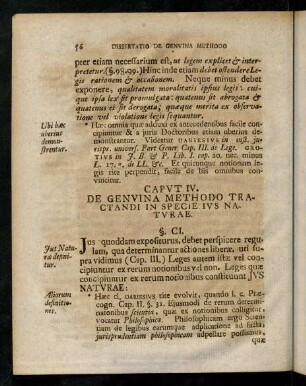 56 DISSERTATIO DE GENVINA METHODO
pter etiam necessarium est, ut legem explicet & inter-
pretetur. (§. 98. 99.) Hinc inde etiam debet ostendere Le-
gis rationem & occasionem. Neque minus debet
exponere, qualitatem moralitatis ipsius legis: cui-
que ipsa lex sit promulgata: quatenus sit abrogata &
quatenus et sit derogata; quæque merita ex observa-
tione vel violatione legis sequantur.
Ubi hæc
uberius
demon-
strentur.
* Hæc omnia quæ adduxi ex antecedentibus facile con-
cipiuntur & a juris Doctoribus etiam uberius de-
monstrantur. Videatur DARIESIVS in inst. jur-
ispr. univers. Part Gener Cap. III. de Lege.
in J. B & P. Lib. I. cap. 20. nec minus
L. 17. de LL. &c. Et quicunque notionem legis
rite perpendit, facile de his omnibus convincitur.
CAPVT IV.
DE GENVINA METHODO TRA-
CTANDI IN SPECIE IVS NA-
TVRAE.
§. CI.
Jus Natu-
ræ defini-
tur.
Jus quoddam expositurus, debet perspicere regu-
lam, qua determinantur actiones liberæ, uti su-
pra vidimus (Cap. III.) Leges autem istæ vel con-
cipiuntur ex rerum notionibus vel non. Leges quæ
concipiuntur ex rerum notionibus constituunt JVS
NATVRAE:
Aliorum
definitio-
nes.
* Hæc cl. DARIESIVS rite evolvit, quando I. c. Præ-
cogn. Cap. II. §. 31. Ejusmodi de rerum determi-
nationibus scientia, quæ ex notionibus colligitur,
vocatur Philosophica. Philosophicam ergo Scien-
tiam de legibus earumque adplicatione ad facta
jurisprudentiam philosophicam adpellare possumus,
quæ